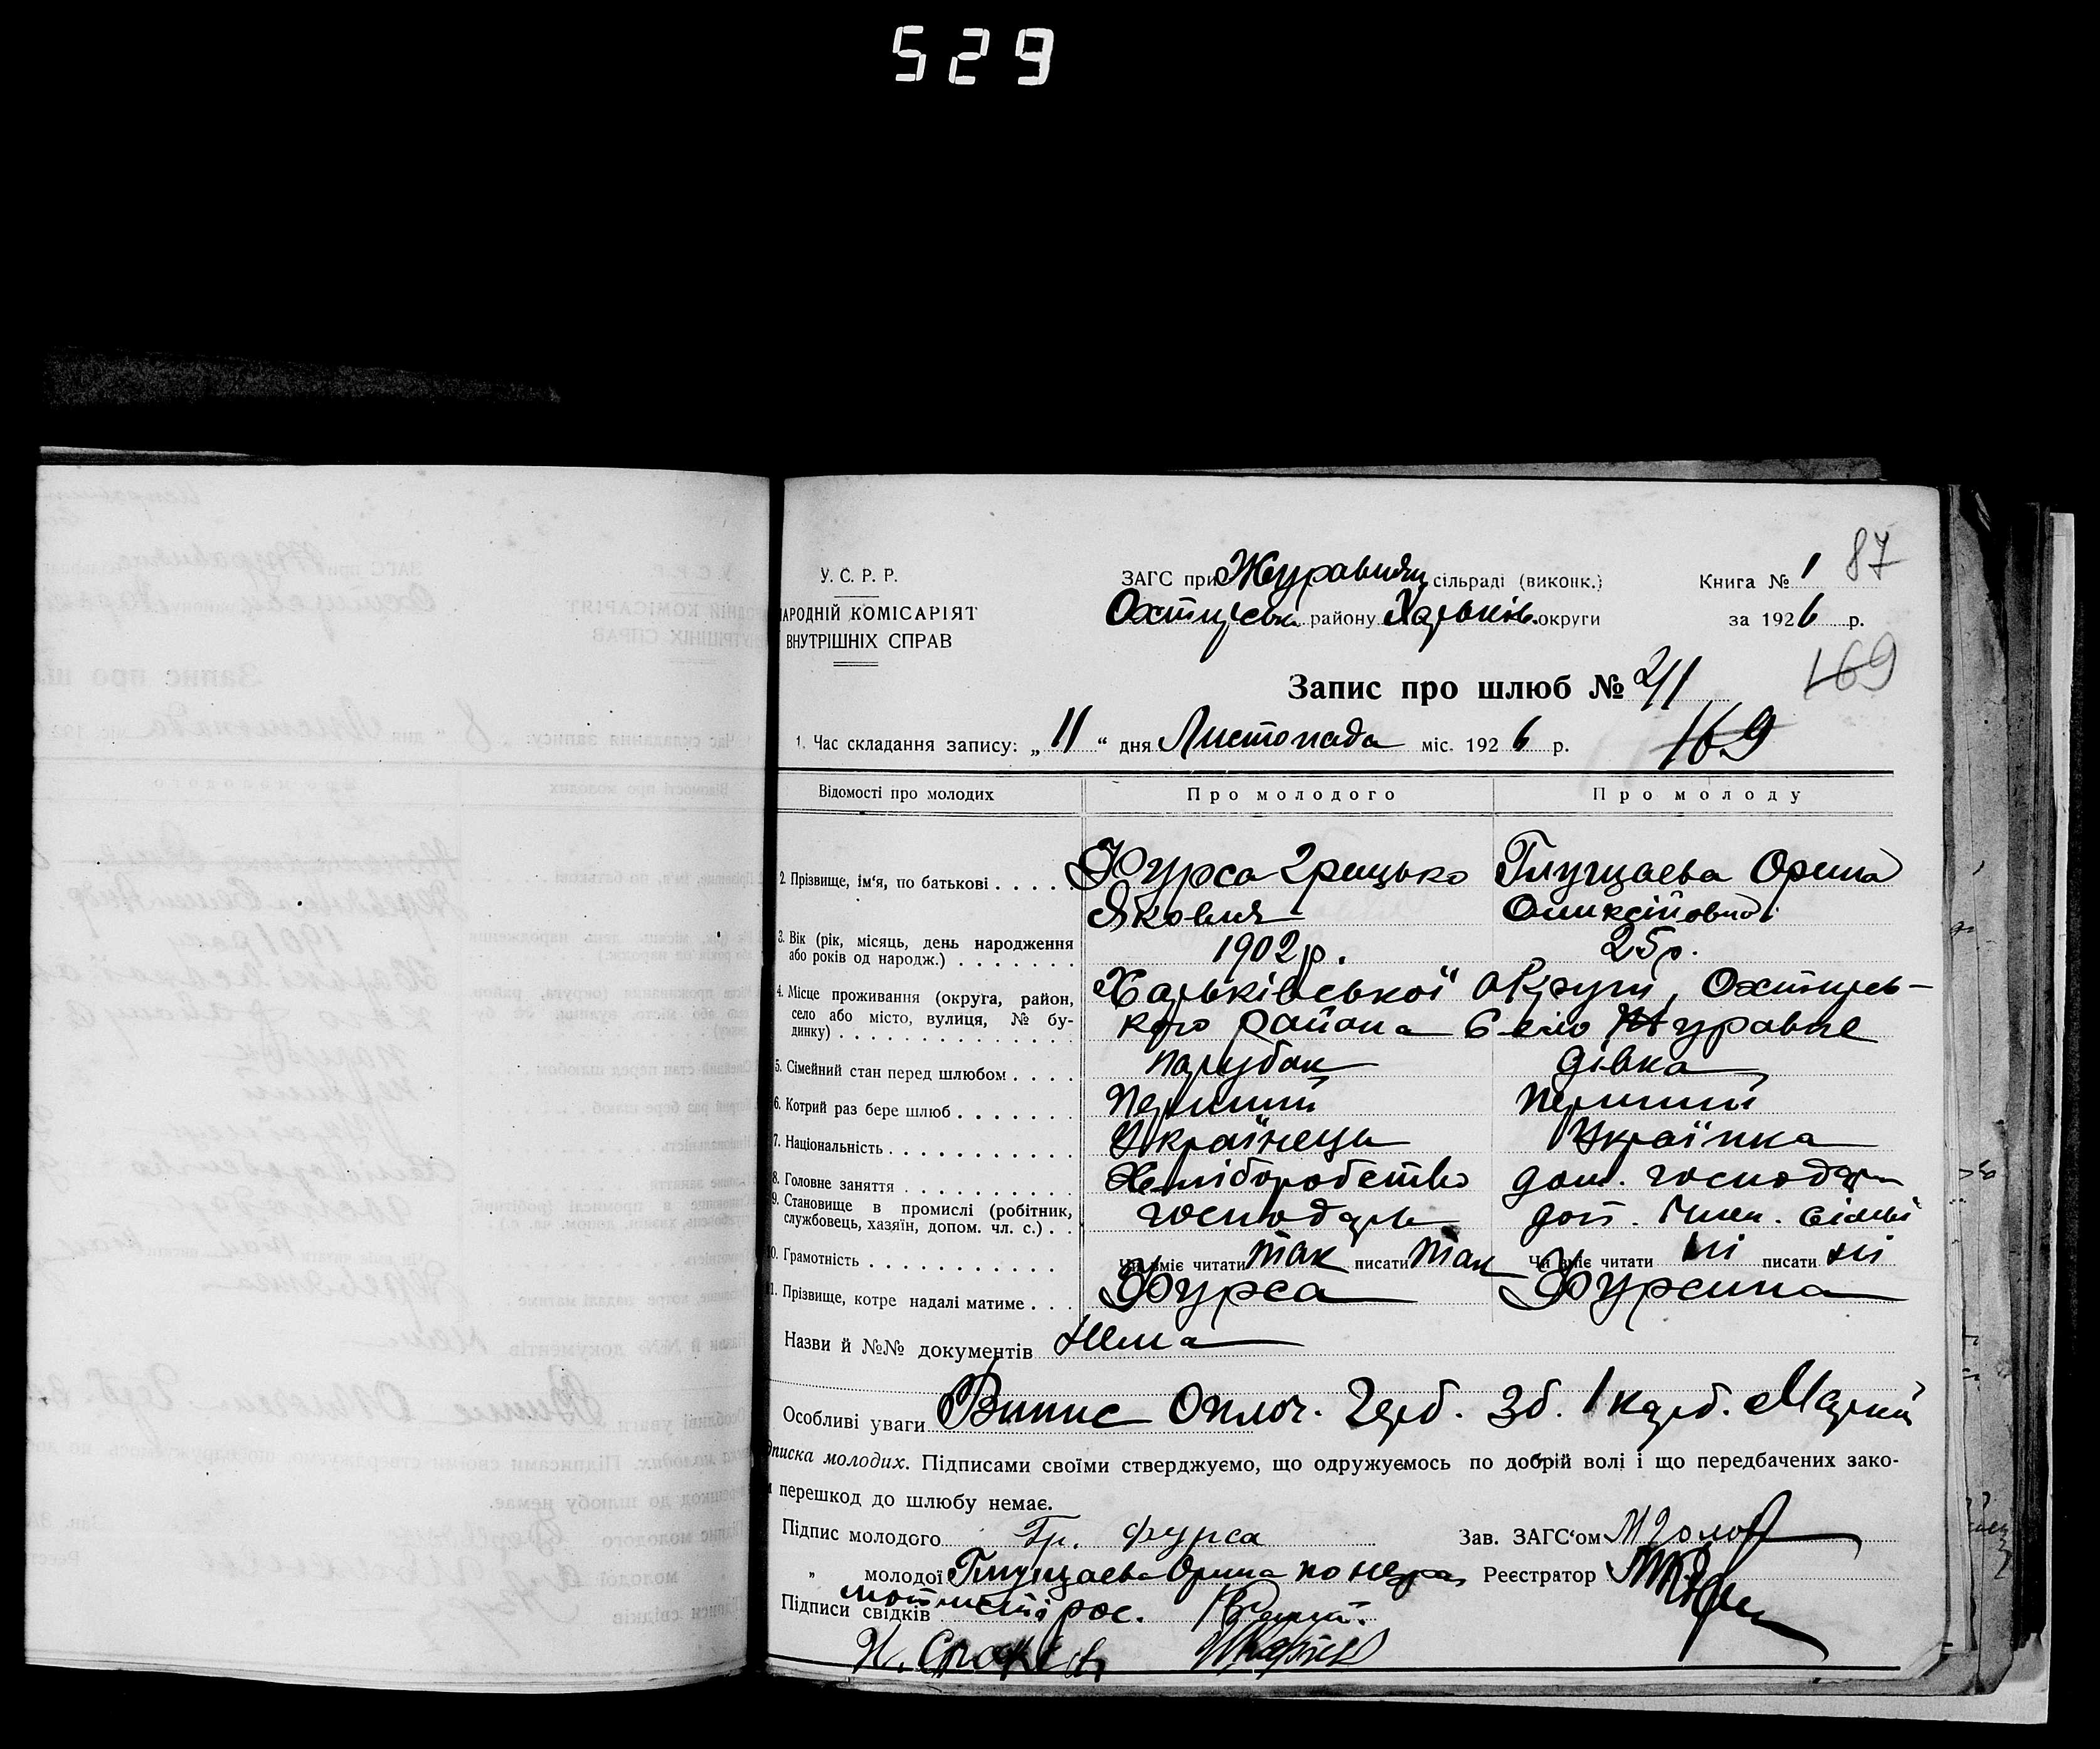 529
У. С. Р. Р.
НАРОДНІЙ КОМІСАРІЯТ
ВНУТРІШНІХ СПРАВ
ЗАГС при Журавнян сільраді (виконк.)
Охтирськ району Харьків. округи
Книга № 1 87
за 1926 р.
Запис про шлюб № 211
169
1. Час складання запису: „11“ дня Листопада міс. 1926 р.
169
Відомості про молодих
Про молодого
Про молоду
2. Прізвище, ім'я, по батькові . . . .
Фурса Грицько Якович
Глущаєва Орина
3. Вік (рік, місяць, день народження
або років од народж.) . . . . . . .
1902 р.
25 р.
4. Місце проживання (округа, район,
село або місто, вулиця, № бу-
динку) . . . . . . . . . . . . . .
Харьківської округи, Охтирсь-
кого района село Журавне
5. Сімейний стан перед шлюбом . . . .
парубок
дівка
6. Котрий раз бере шлюб . . . . . . .
Перший
Перший
7. Національність . . . . . . . . . . .
Українець
Українка
8. Головне заняття . . . . . . . . . .
Хліборобство
дом. господар
9. Становище в промислі (робітник,
службовець, хазяїн, допом. чл. с.) . .
господарь
доп. член. сімьї
10. Грамотність . . . . . . . . . . . .
Чи вміє читати так писати так
Чи вміє читати ні писати ні
11. Прізвище, котре надалі матиме . . .
Фурса
Фурсина
Назви й №№ документів Нема
Особливі уваги Випис Оплоч. Герб. Зб. 1 карб. Марки
Підписка молодих. Підписами своїми стверджуємо, що одружуємось по добрій волі і що передбачених зако-
перешкод до шлюбу немає.
Підпис молодого Гр. Фурса
Зав. ЗАГС'ом
„ молодої Глущаєва Орина по негра
Реєстратор
мотности рос.
Підписи свідків